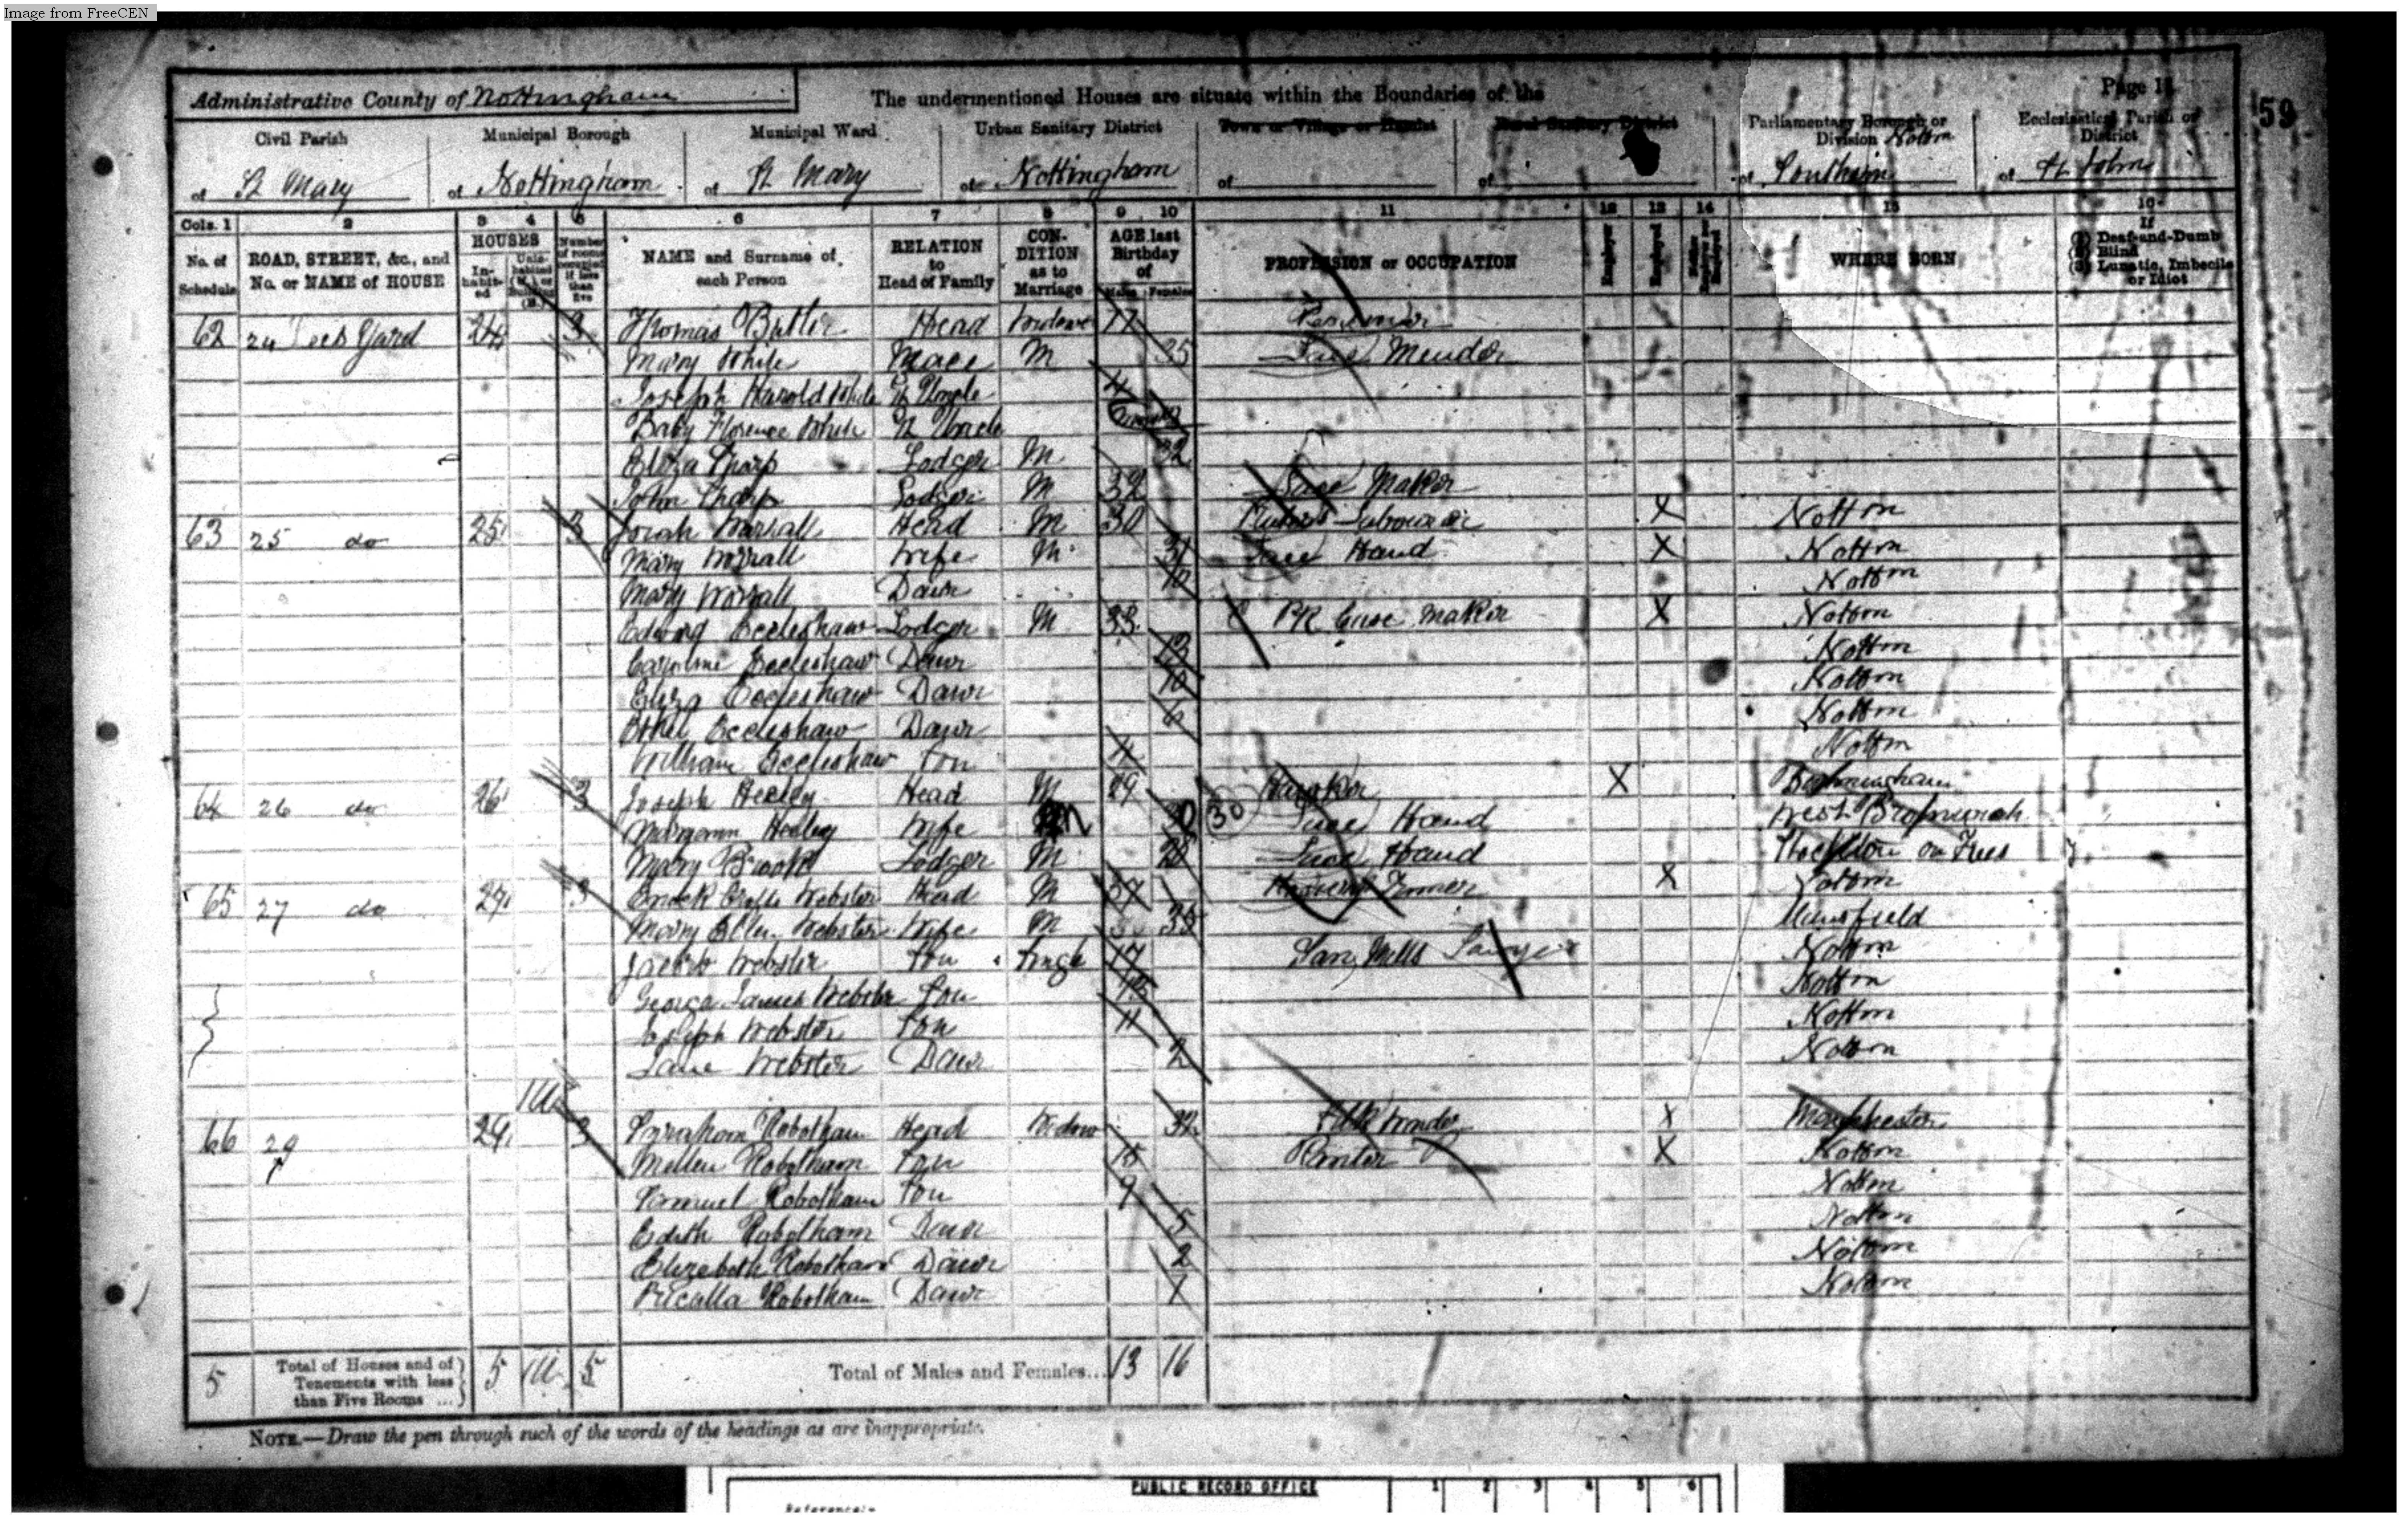 Image from FreeCEN
Page 1
59
Administrative County of Nottingham
The undermentioned Houses are situate within the Boundaries of the
Civil Parish
Municipal Borough
Municipal Ward
Urban Sanitary District
Town or Village or Hamlet
Rural Sanitary District
Parliamentary Borough or Division Nottm
Ecclesiastical Parish or District
of St Mary
of Nottingham
of St Mary
of Nottingham
of
of
of Southern
of St Johns
Cols. 1 2 3 4 5 6 7 8 9 10 11 12 13 14 15 16
No. of Schedule
ROAD, STREET, &c., and No. or NAME of HOUSE
HOUSES
Inhabited
Uninhabited (U.) or Building (B.)
Number of rooms occupied if less than five
NAME and Surname of each Person
RELATION to Head of Family
CONDITION as to Marriage
AGE last Birthday of
Males Females
PROFESSION or OCCUPATION
Employer
Employed
Neither Employer nor Employed
WHERE BORN
If
(1) Deaf-and-Dumb
(2) Blind
(3) Lunatic, Imbecile or Idiot
62 24 Yard 24 3 Thomas Butler Head Widower 77
Mary White M 25 Lace Mender
Joseph Harold White Uncle 4
Baby Florence White Uncle
Eliza Tharp Lodger M 32
John Tharp Lodger M 32 Maker
63 25 do 25 3 Worrall Head M 30 Labourer X Nottm
Mary Worrall Wife M 31 Lace Hand X Nottm
Mary Worrall Daur 10 Nottm
Edward Eccleshaw Lodger M 33 Case Maker X Nottm
Caroline Eccleshaw Daur 13 Nottm
Eliza Eccleshaw Daur 10 Nottm
Ethel Eccleshaw Daur 6 Nottm
William Eccleshaw Son 4 Nottm
64 26 do 26 3 Joseph Heeley Head M 29 Hawker X Birmingham
Maryann Heeley Wife M 30 Lace Hand West Bromwich
Mary Brook Lodger M 28 Lace Hand Stockton on Tees
65 27 do 27 3 Webster Head M 37 X Nottm
Mary Ellen Webster Wife M 35 Mansfield
Jacob Webster Son Single 17 Saw Mills Sawyer Nottm
George James Webster Son Nottm
Joseph Webster Son 11 Nottm
Jane Webster Daur 2 Nottm
1U
66 29 29 3 Robotham Head Widow 32 Silk Winder X Manchester
Robotham Son 15 Printer X Nottm
Samuel Robotham Son 9 Nottm
Edith Robotham Daur 5 Nottm
Elizabeth Robotham Daur 2 Nottm
Robotham Daur Nottm
5 Total of Houses and of Tenements with less than Five Rooms ... 5 1U 5 Total of Males and Females... 13 16
NOTE.—Draw the pen through such of the words of the headings as are inappropriate.
PUBLIC RECORD OFFICE
1 2 3 4 5 6
Reference:-